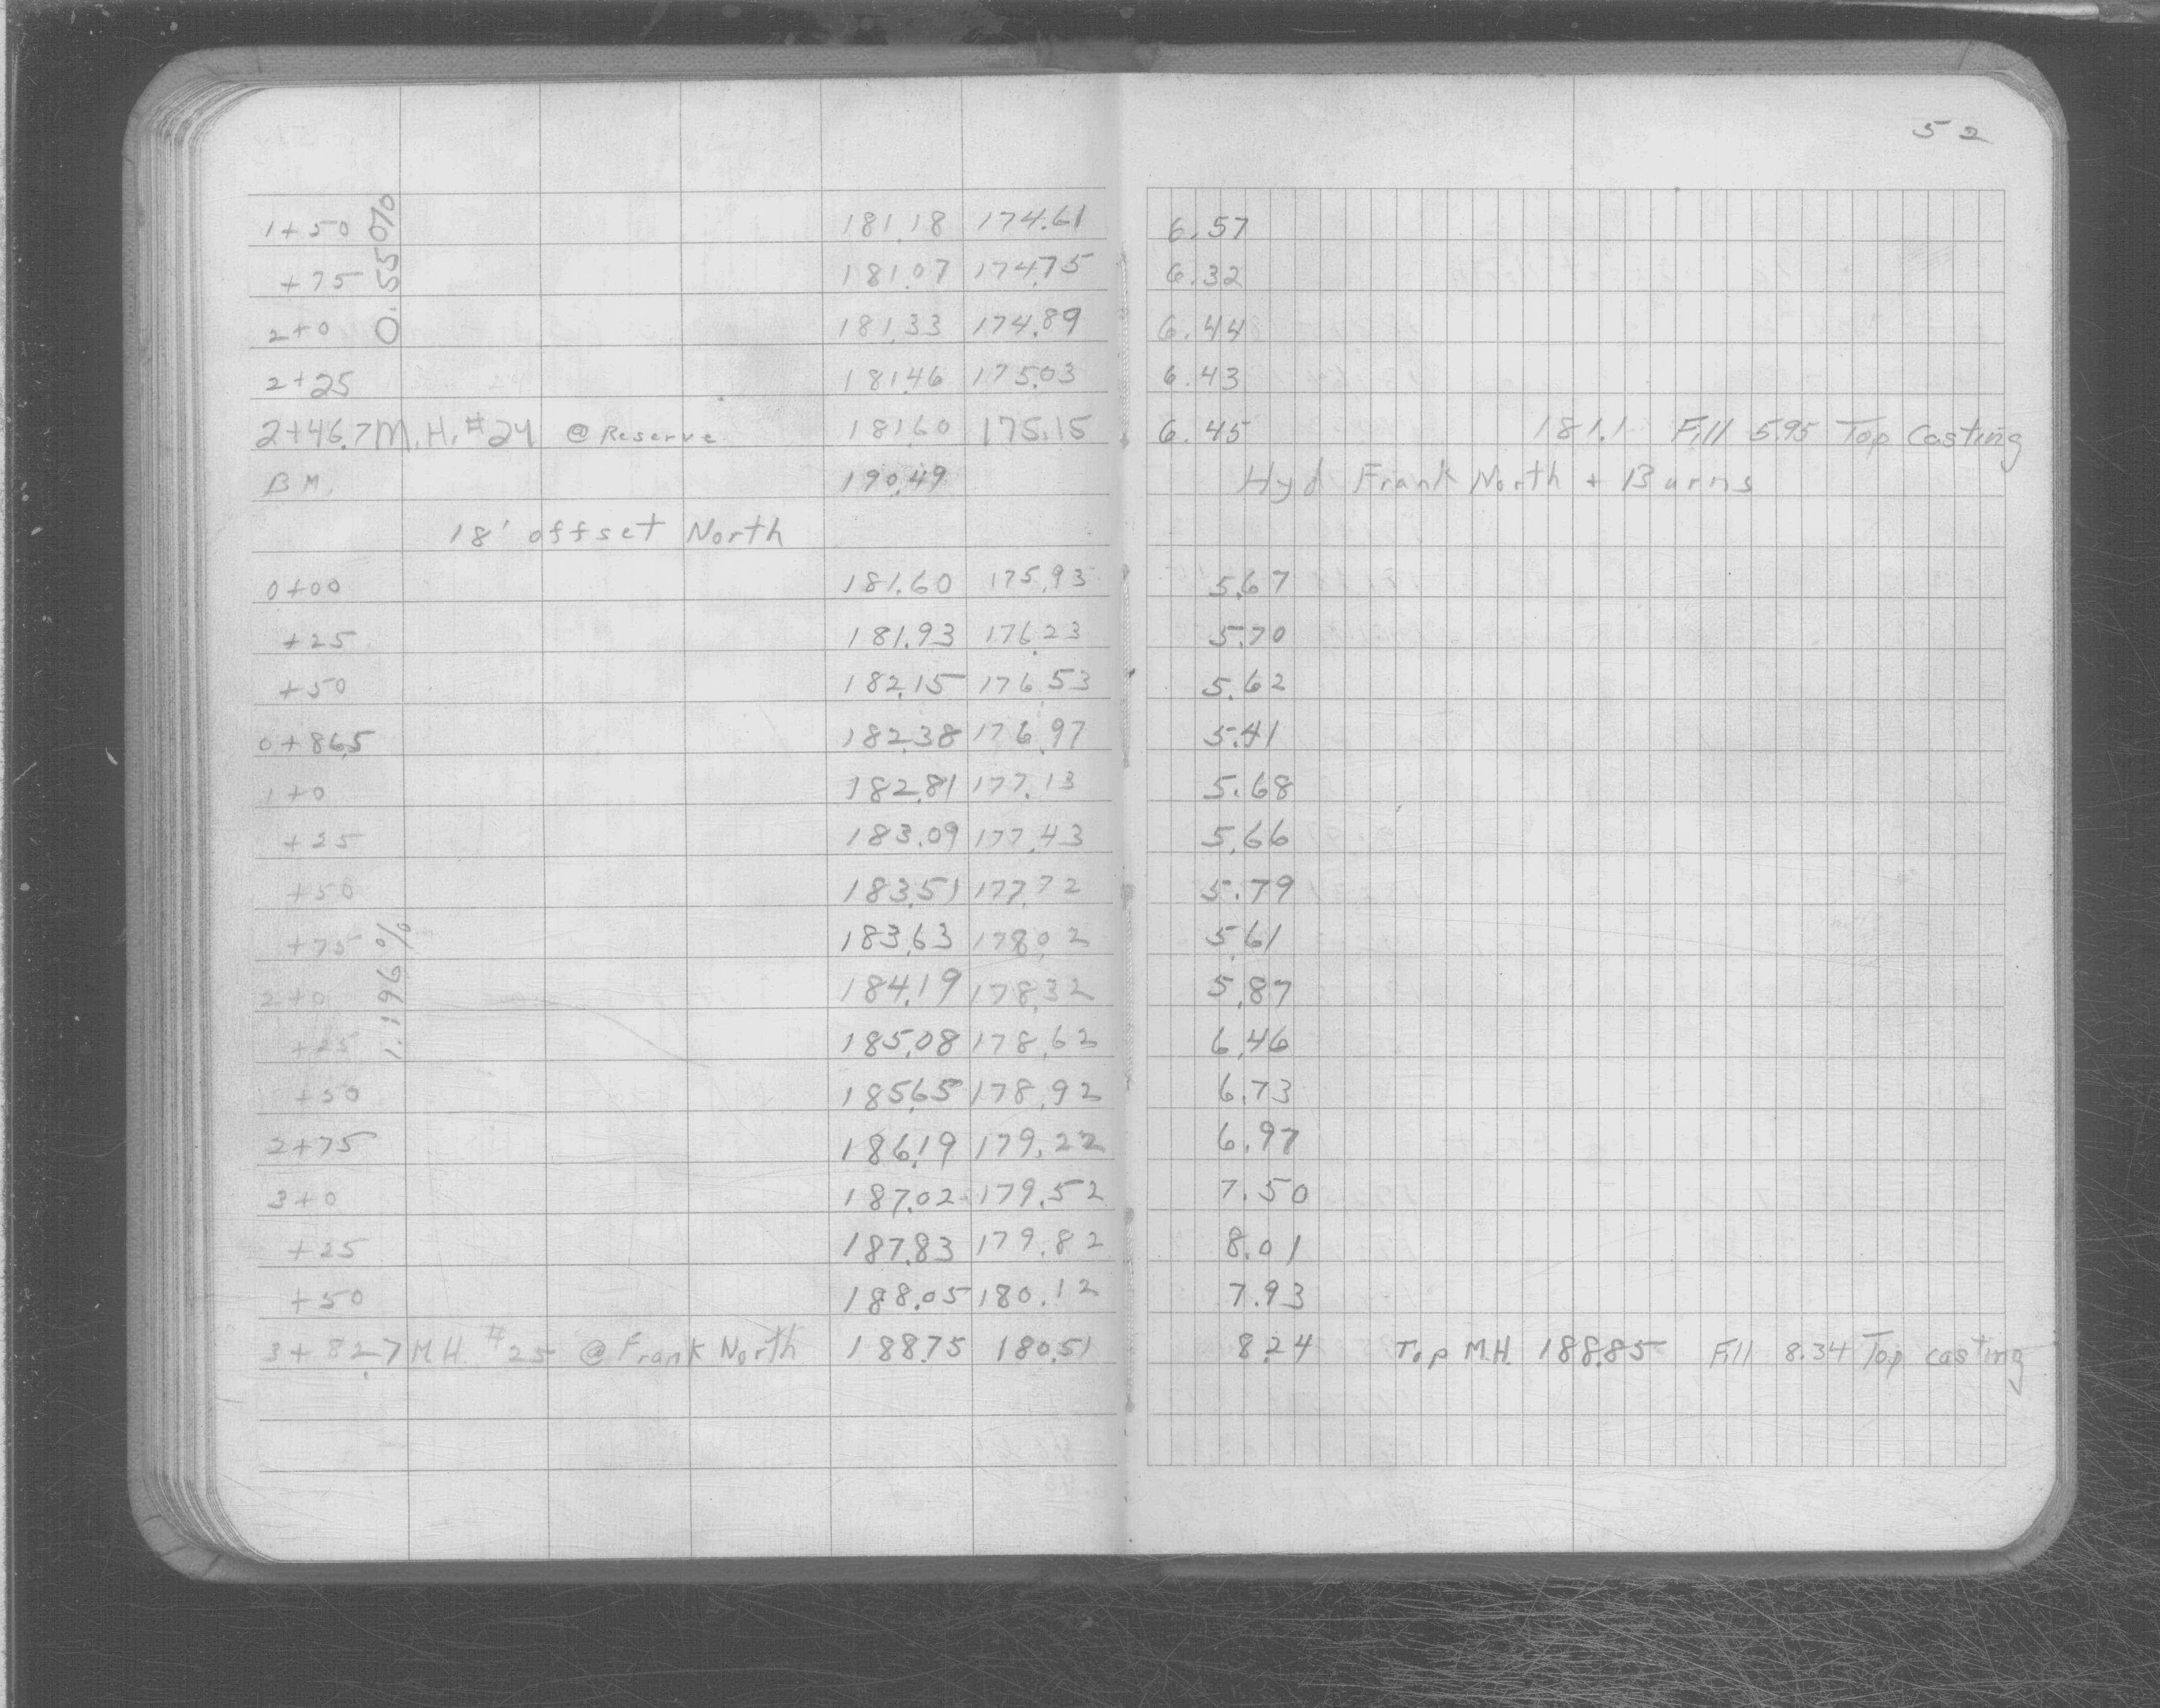 52
1+50 181.18 174.61 6.57
0.550%
+75 181.07 174.75 6.32
2+0 181.33 174.89 6.44
2+25 181.46 175.03 6.43
2+46.7 M.H. #24 @ Reserve 181.60 175.15 6.45 181.1 Fill 5.95 Top Casting
B.M. 190.49 Hyd Frank North + Burns
18' offset North
0+00 181.60 175.93 5.67
+25 181.93 176.23 5.70
+50 182.15 176.53 5.62
0+86.5 182.38 176.97 5.41
1+0 182.81 177.13 5.68
+25 183.09 177.43 5.66
+50 183.51 177.72 5.79
+75 183.63 178.02 5.61
1.196%
2+0 184.19 178.32 5.87
+25 185.08 178.62 6.46
+50 185.65 178.92 6.73
2+75 186.19 179.22 6.97
3+0 187.02 179.52 7.50
+25 187.83 179.82 8.01
+50 188.05 180.12 7.93
3+82.7 M.H. #25 @ Frank North 188.75 180.51 8.24 Top M.H. 188.85 Fill 8.34 Top casting